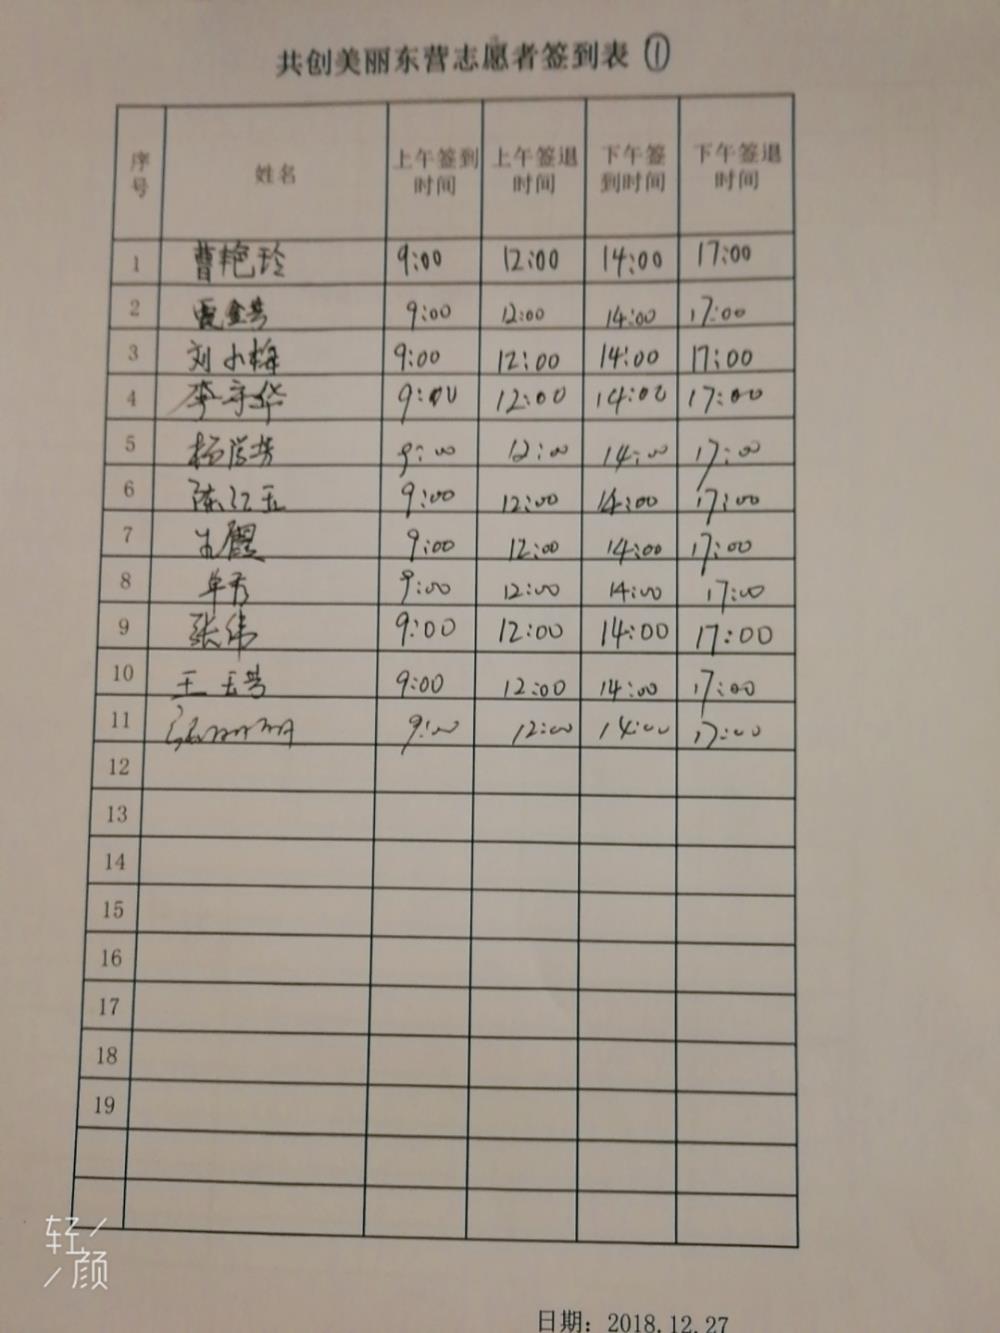 共创美丽东营志愿者签到表 ①
序号 姓名 上午签到时间 上午签退时间 下午签到时间 下午签退时间
1 曹艳玲 9:00 12:00 14:00 17:00
2 9:00 12:00 14:00 17:00
3 刘小梅 9:00 12:00 14:00 17:00
4 李守华 9:00 12:00 14:00 17:00
5 杨学芳 9:00 12:00 14:00 17:00
6 陈红玉 9:00 12:00 14:00 17:00
7 9:00 12:00 14:00 17:00
8 单秀 9:00 12:00 14:00 17:00
9 张伟 9:00 12:00 14:00 17:00
10 王玉芳 9:00 12:00 14:00 17:00
11 9:00 12:00 14:00 17:00
12
13
14
15
16
17
18
19
轻颜
日期：2018.12.27